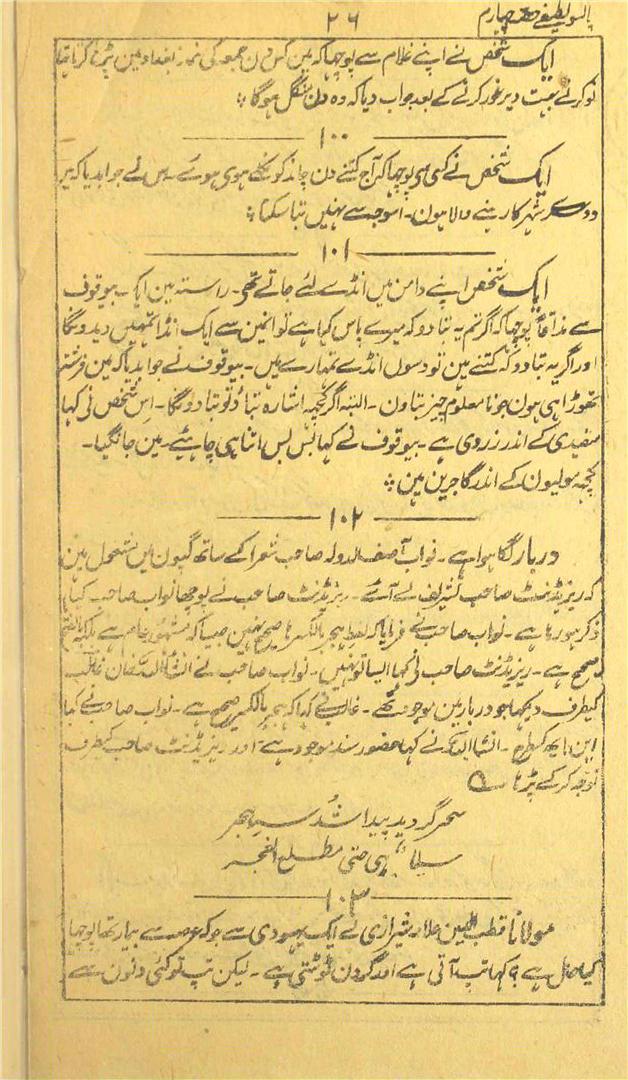 پانسو لطیفے حصہ چہارم
۲۶
ایک شخص نے اپنے غلام سے پوچھا کہ مین کس دن جمعہ کی نماز بغداد مین پڑہا کرتا تھا
نوکر نے بہت دیر غور کرنے کے بعد جواب دیا کہ وہ دن منگل ہوگا ؞
۱۰۰
ایک شخص نے کسی سی پوچھا کہ آج کتنے دن چاند کو نکلے ہوی ہوئے۔ اس نے جواب دیا کہ مین
دوسرے شہر کا رہنے والا ہون۔ اسوجہ سے نہین بتا سکتا ؞
۱۰۱
ایک شخص اپنے دامن میں انڈے لئے جاتے تھے۔ راستہ مین ایک بیوقوف
سے مذاقاً پوچھا کہ اگر تم یہ بتا دو کہ میرے پاس کیا ہے تو انمین سے ایک انڈا تمہیں دیدونگا
اور اگر یہ بتا دو کہ کتنے مین تو دسوں انڈے تمہارے ہیں۔ بیوقوف نے جواب دیا کہ مین فرشتہ
تھوڑا ہی ہون جو نا معلوم چیز بتاون۔ البتہ اگر کچہہ اشارہ بتاؤ تو بتا دونگا۔ اس شخص نی کہا
سفیدی کے اندر زردی ہے۔ بیوقوف نے کہا بس بس اتنا ہی چاہئیے۔ مین جانگیا۔
کچہہ مولیون کے اندر گاجرین ہین ؞
۱۰۲
دربار لگا ہوا ہے۔ نواب آصف الدولہ صاحب شعرا کے ساتھ گپون میں مشغول ہین
کہ ریزیڈنٹ صاحب تشریف لے آئے۔ ریزیڈنٹ صاحب نے پوچھا نواب صاحب کیا
ذکر ہو رہا ہے۔ نواب صاحب نے فرمایا کہ لفظ ہجر بالکسر صحیح نہین جیسا کہ مشہور عام ہے بلکہ بالفتح
صحیح ہے۔ ریزیڈنٹ صاحب نی کہا ایسا تو نہیں۔ نواب صاحب نے انشا اللہ خان
کیطرف دیکھا جو دربار مین موجود تھے۔ نے کہا کہ ہجر بالکسر صحیح ہے۔ نواب صاحب نے کہا
این یہ کسطرح۔ انشا اللہ نے کہا حضور سند موجود ہے اور ریزیڈنٹ صاحب کیطرف
توجہ کر کے پڑہا ؎
سحر گردید پیدا شد سر ہجر
سلٰمٌ ہی حتی مطلع الفجر
۱۰۳
مولانا قطب الدین علامہ شیرازی نے ایک یہودی سے جو کہ عرصہ سے بیمار تھا پوچھا
کیا حال ہے ؟ کہا تپ آتی ہے اور گردن ٹوٹتی ہے۔ لیکن تپ تو کئی دنون سے